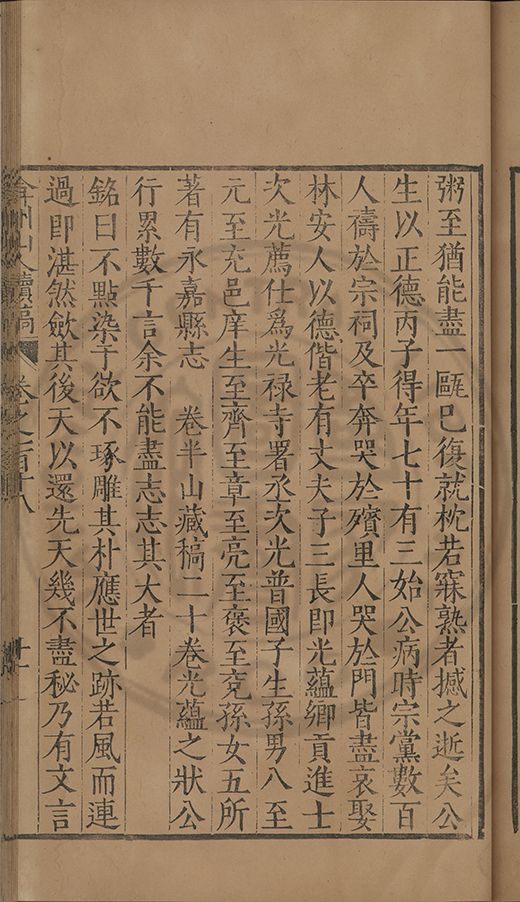 粥至猶能盡一甌已復就枕若寐熟者撼之逝矣公
生以正德丙子得年七十有三始公病時宗黨數百
人禱於宗祠及卒奔哭於殯里人哭於門皆盡哀娶
林安人以德偕老有丈夫子三長即光蘊鄉貢進士
次光薦仕爲光祿寺署丞次光普國子生孫男八至
元至充邑庠生至齊至章至亮至褒至兗孫女五所
著有永嘉縣志　卷半山藏稿二十卷光蘊之狀公
行累數千言余不能盡志志其大者
銘曰不點染于欲不琢雕其朴應世之跡若風而連
過即湛然斂其後天以還先天幾不盡秘乃有文言
弇州山人續稿 卷之一百十八